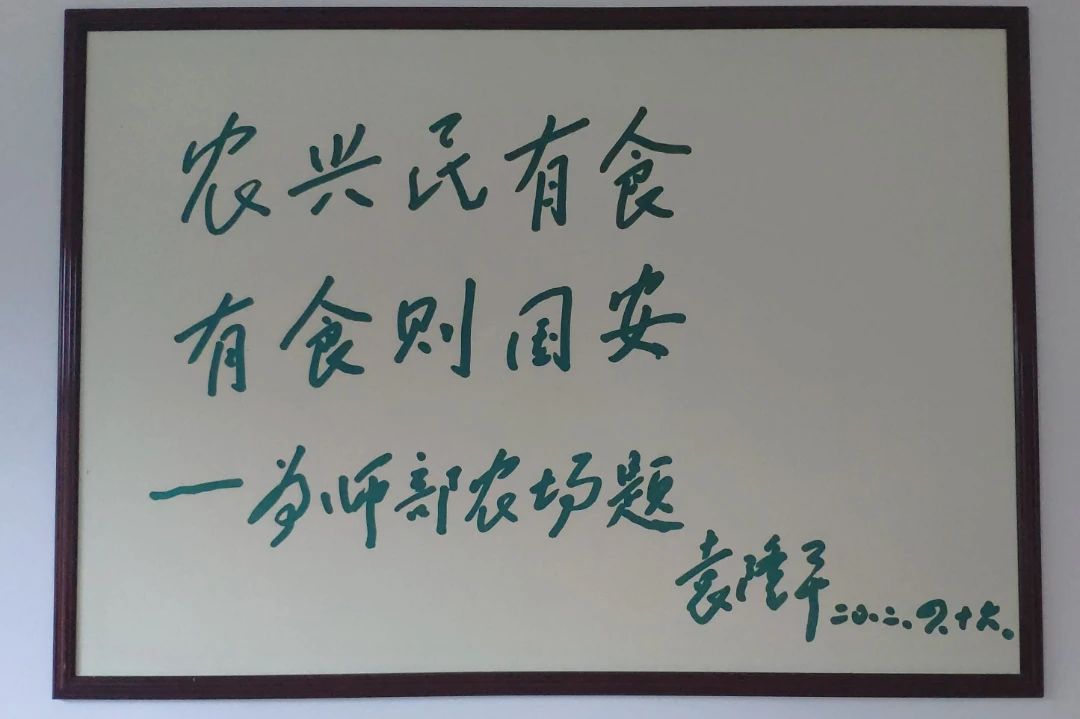 农兴民有食
有食则国安
一为师部农场题
袁隆平
二〇.二.四.十六.